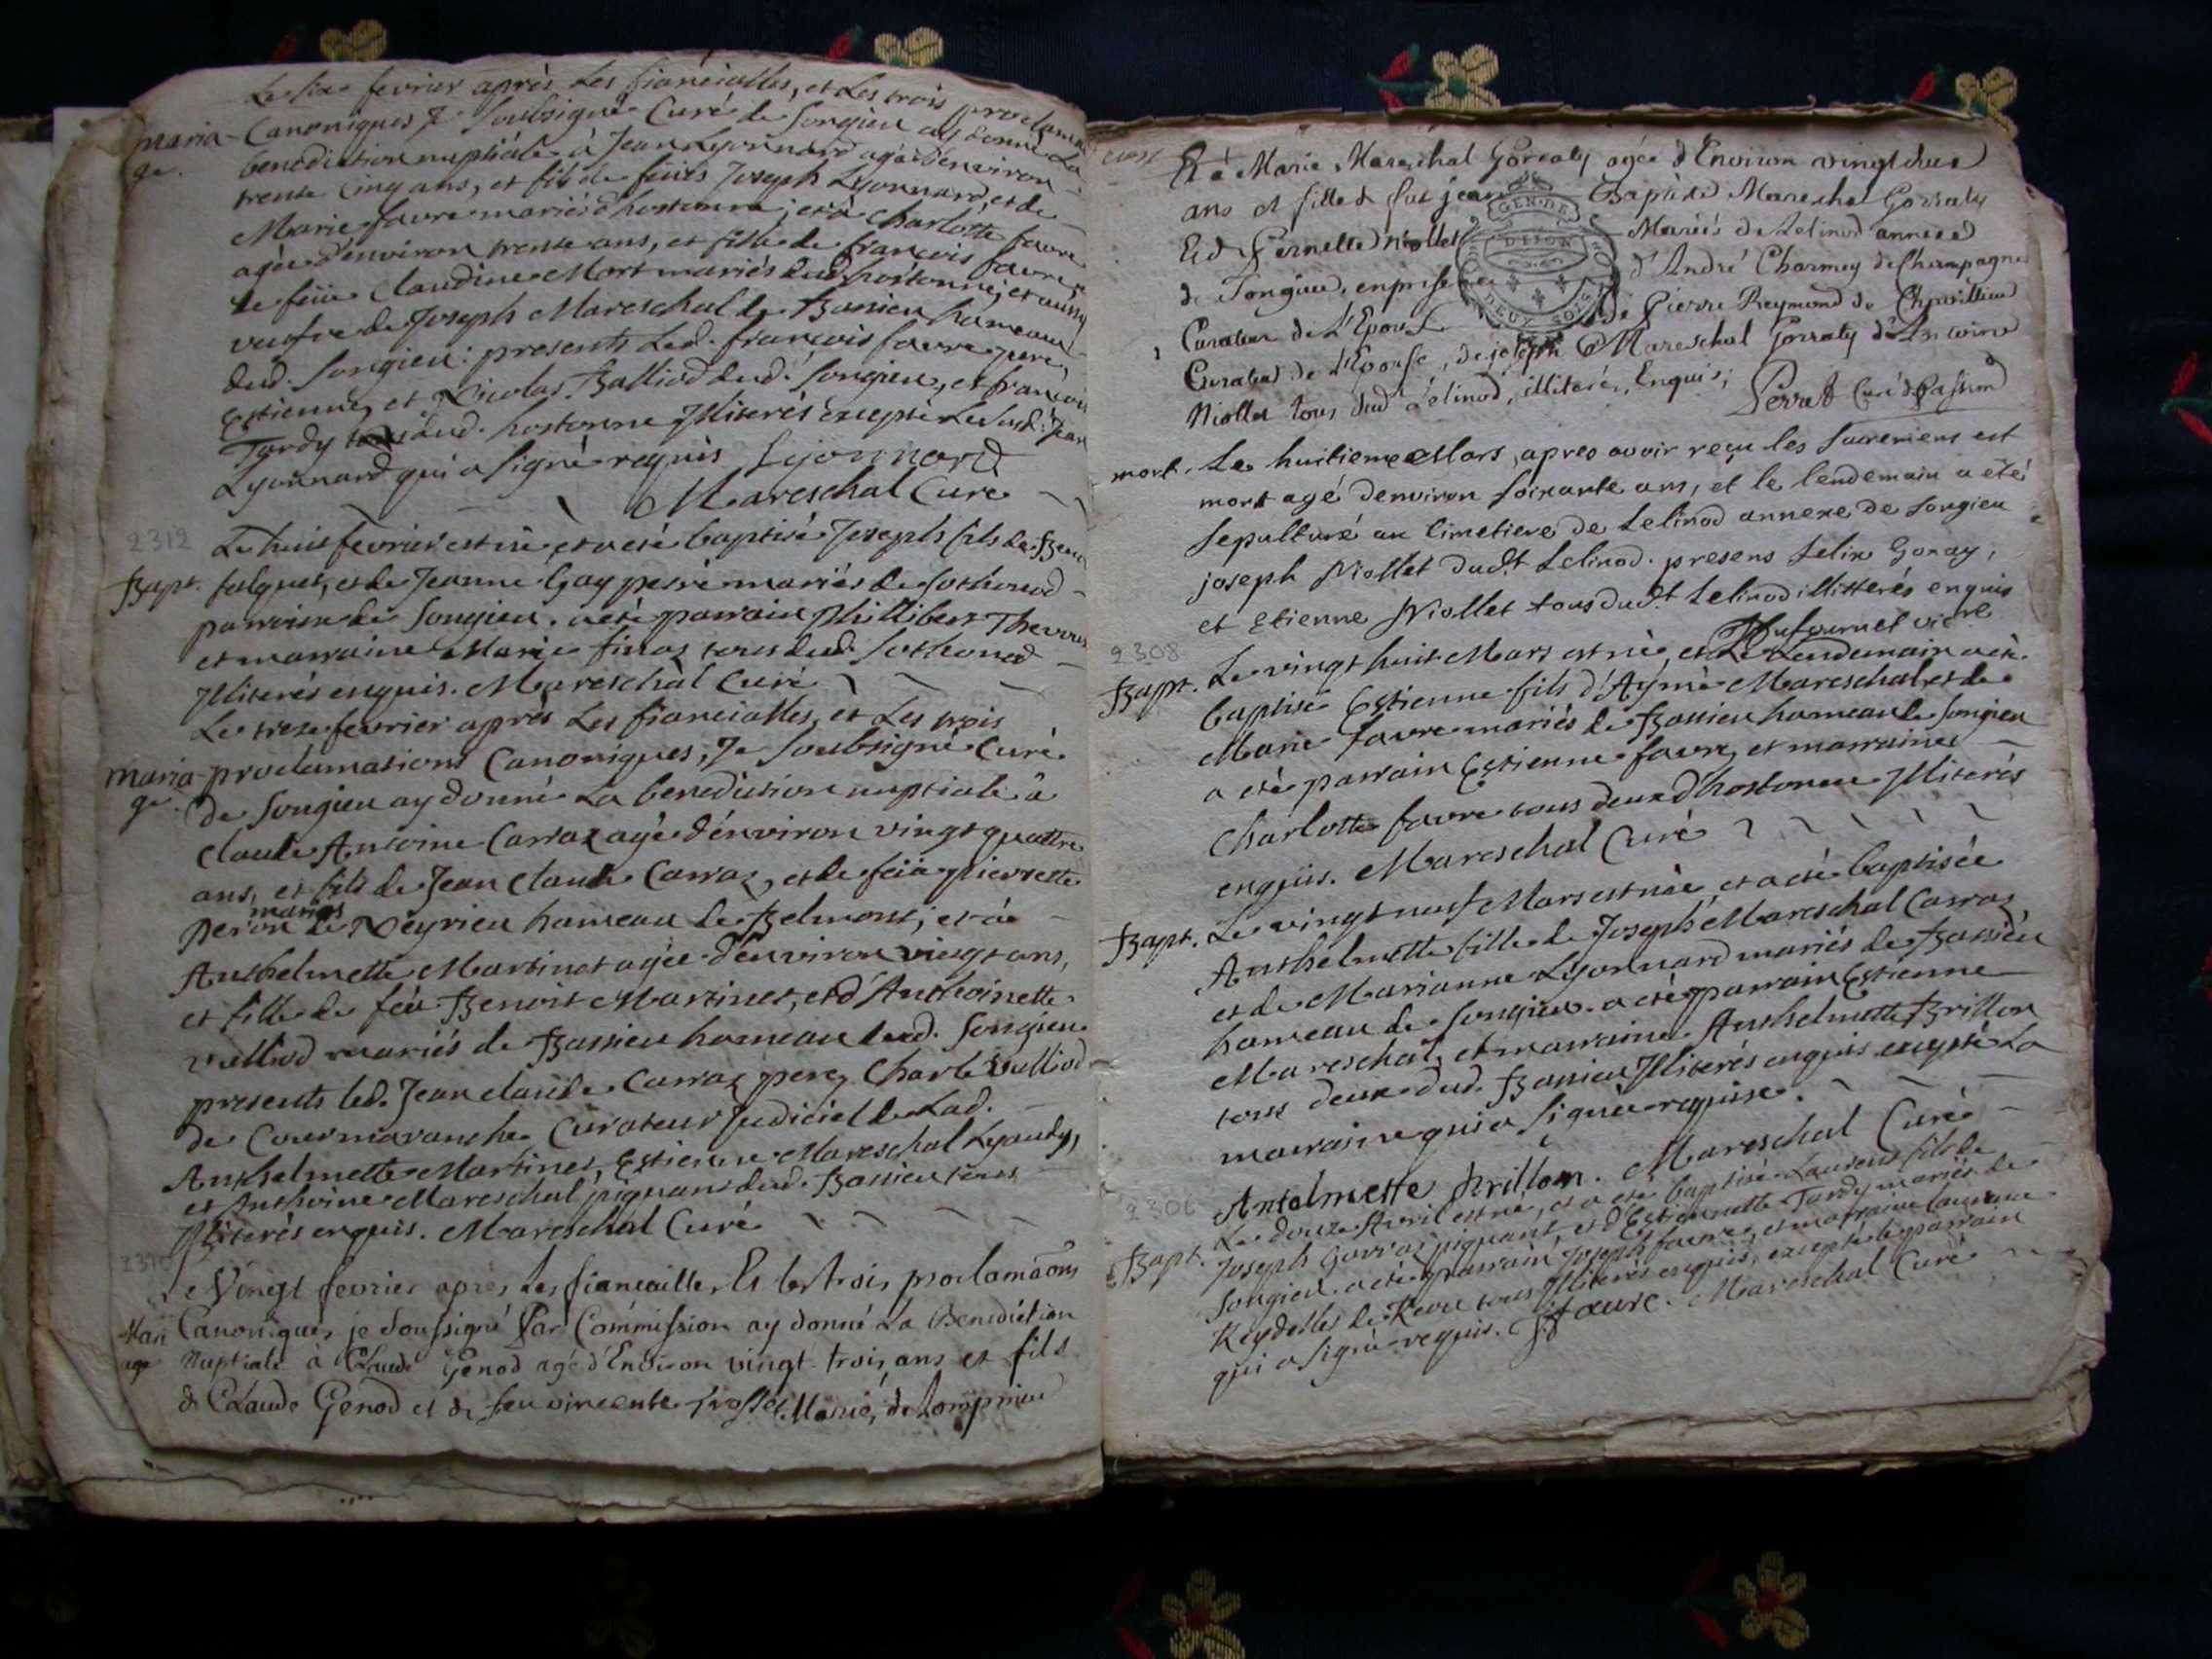 Le six fevrier après Les fiancialles, et Les trois proclama
maria-
ge.
Canoniques Je soubsigné Curé de Songieu ay donné La
benediction nuptiale à Jean Lyonnard agé d'environ
trente cinq ans, et fils de feüs Joseph Lyonnard, et de
Marie favre mariés d'hostonne; et à Charlotte favre
agée d'environ trente ans, et fille de françois favre
de feüe Claudine Mort mariés dud. hostonne, et aussy
veufve de Joseph Mareschal de Bassieu hameau
dud. Songieu: presents Led. françois favre pere,
Estienne, et Nicolas Balliod dud. Songieu, et françois
Tardy dud. hostonne Illiterés excepté Le susd. Jean
Lyonnard qui a signé requis Lyonnard
Mareschal Curé
2312
Le huit fevrier est né et a eté baptisé Joseph fils de Benoi
Bapt.
fulquet, et de Jeanne Gay mariés de Sothonod
parroisse de Songieu. a eté parrain Phillibert
et marraine Marie tous dud. Sothonod
Illiterés enquis. Mareschal Curé
Le treze fevrier après Les fiancialles, et Les trois
maria-
ge.
proclamations Canoniques, Je soubsigné Curé
de Songieu ay donné La benediction nuptiale à
Claude Antoine Carraz agé d'environ vingt quattre
ans, et fils de Jean Claude Carraz, et de feüe pierrette
mariés
peron de Neyrieu hameau de Belmont; et à
Anthelmette Martinet agée d'environ vingt ans,
et fille de feu Benoit Martinet, et d'Anthoinette
vulliod mariés de Bassieu hameau dud. Songieu
presents led. Jean claude Carraz pere, Charle Vulliod
de Cormaranche Curateur Judiciel de Lad.
Anthelmette Martinet, Estienne Mareschal Lyaudy,
et Anthoine Mareschal piquant dud. Bassieu tous
Illiterés enquis. Mareschal Curé
Vingt fevrier apres les fiancailles Et les trois proclamaons
Mari
age
Canoniques je soussigné Par Commission ay donné La Benediction
Nuptiale à Claude Genod agé d'Environ vingt-trois ans et fils
de Claude Genod et de feu vincente Mariés de Lompnieu
Et à Marie Mareschal Gorraty agée d'Environ vingt deux
ans et fille de feu jean Baptiste Mareschal Gorraty
Et de Pernette Niollet Mariés de Lelinod annexe
de Songieu, en presence d'André Charmey de Champagne
Curateur de L'Epoux de Pierre Reymond de
Curateur de L'Epouse, de joseph Mareschal Gorraty d'Antoine
Niollet tous dud Lelinod, illiterés, Enquis;
Perrat Curé de Passin
GEN. DE
DIJON
DEUX SOLS
mort.
Le huitieme Mars, apres avoir reçu les Sacremens est
mort agé d'environ soixante ans, et le lendemain a eté
sepulturé au Cimetiere de Lelinod annexe de Songieu
joseph Niollet dudt Lelinod. presens felix Goray,
et Etienne Niollet tous dudt Lelinod illitterés enquis
Dufournel vicre
2308
Bapt.
Le vingt huit Mars est né, et Le Lendemain a eté
baptisé Estienne fils d'Aymé Mareschal, et de
Marie favre mariés de Bassieu hameau de Songieu
a eté parrain Estienne favre, et marraine
Charlotte favre tous deux d'hostonne Illiterés
enquis. Mareschal Curé
Bapt.
Le vingt neuf Mars est née, et a eté baptisée
Anthelmette fille de Joseph Mareschal Carraz
et de Marianne Lyonnard mariés de Bassieu
hameau de Songieu. a eté parrain Estienne
Mareschal, et marraine Anthelmette Brillon
tous deux dud. Bassieu Illiterés enquis excepté La
marraine qui a signée requise.
Antelmette brillon. Mareschal Curé
2306
Bapt.
Le douze Avril est né, et a eté baptisé Laurent fils de
Joseph Gorraz piquant, et d'Estiennette Tardy mariés de
Songieu. a eté parrain Joseph favre, et marraine Laurence
Reydellet de tous Illiterés enquis, excepté le parrain
qui a signé requis. J favre. Mareschal Curé